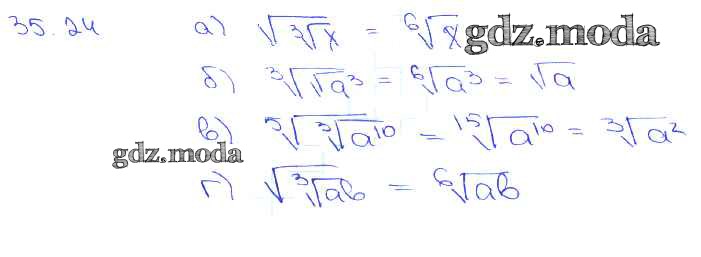 35.24 а) √∛x = ⁶√x gdz.moda
б) ∛√a³ = ⁶√a³ = √a
в) ⁵√∛a¹⁰ = ¹⁵√a¹⁰ = ∛a²
gdz.moda
г) √∛ab = ⁶√ab